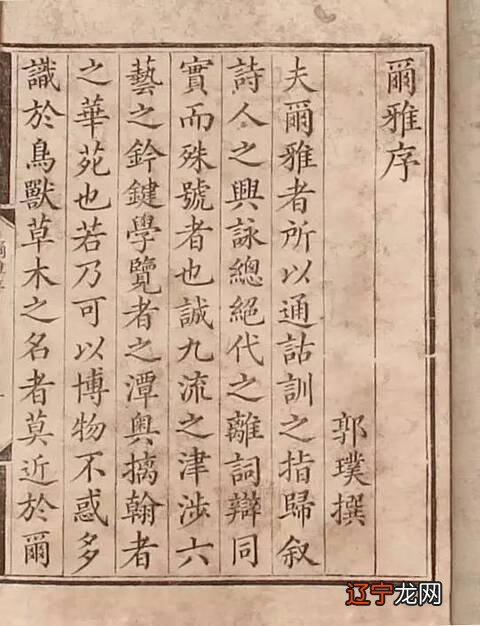 爾雅序
郭璞撰
夫爾雅者所以通詁訓之指歸叙
詩人之興詠總絕代之離詞辯同
實而殊號者也誠九流之津涉六
藝之鈐鍵學覽者之潭奥摛翰者
之華苑也若乃可以博物不惑多
識於鳥獸草木之名者莫近於爾
辽宁龙网